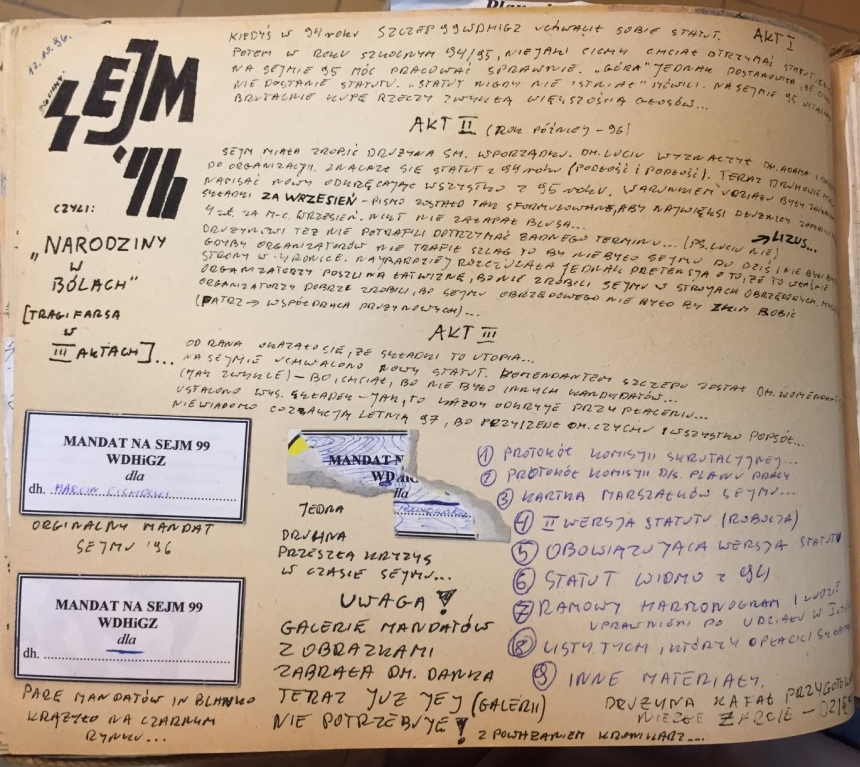 12.10.96.
SEJM
'96
CZYLI:
„NARODZINY
W
BÓLACH”
[TRAGIFARSA
W
III AKTACH]...
AKT I
KIEDYŚ W 94 ROKU SZCZEP 99 WDHIGZ UCHWALIŁ SOBIE STATUT.
POTEM W ROKU SZKOLNYM 94/95, NIEJAKI CICHY CHCIAŁ OTRZYMAĆ STATUT,
NA SEJMIE 95 MÓC PRACOWAĆ SPRAWNIE. „GÓRA” JEDNAK POSTANOWIŁA, ŻE
NIE DOSTANIE STATUTU. „STATUT NIGDY NIE ISTNIAŁ” MÓWILI. NA SEJMIE 95
BRUTALNIE KUPĘ RZECZY ZWYKŁĄ WIĘKSZOŚCIĄ GŁOSÓW...
AKT II (ROK PÓŹNIEJ - 96)
SEJM MIAŁA ZROBIĆ DRUŻYNA SM. W PORZĄDKU. DH. LUCIU WYZNACZYŁ DH. ADAMA I
DO ORGANIZACJI. ZNALAZŁ SIĘ STATUT Z 94 ROKU (PODŁOŚĆ I PODŁOŚĆ). TERAZ DRUHOWIE
NAPISAĆ NOWY ODKRĘCAJĄC WSZYSTKO Z 95 ROKU. WARUNKIEM UDZIAŁU BYŁY
SKŁADKI ZA WRZESIEŃ - PISMO ZOSTAŁO TAK SFORMUŁOWANE, ABY NAJWIĘKSI DŁUŻNICY
4 zł. ZA M-C. WRZESIEŃ. NIKT NIE ZAŁAPAŁ BLUSA...
DRUŻYNOWI TEŻ NIE POTRAFILI DOTRZYMAĆ ŻADNEGO TERMINU... (PS. LUCIU NIE) → LIZUS...
GDYBY ORGANIZATORÓW NIE TRAFIŁ SZLAG TO BY NIE BYŁO SEJMU DO DZIŚ I NIE BYŁO BY
STRONY W KRONICE. NAJBARDZIEJ ROZCZULAŁA JEDNAK PRETENSJA O TO, ŻE TO WŁAŚNIE
ORGANIZATORZY POSZLI NA ŁATWIZNĘ, BO NIE ZROBILI SEJMU W STROJACH OBRZĘDOWYCH.
ORGANIZATORZY DOBRZE ZROBILI, BO SEJMU OBRZĘDOWEGO NIE BYŁO BY Z KIM ROBIĆ
(PATRZ → WSPÓŁPRACA DRUŻYNOWYCH)...
AKT III
OD RANA OKAZAŁO SIĘ, ŻE SKŁADKI TO UTOPIA...
NA SEJMIE UCHWALONO NOWY STATUT. KOMENDANTEM SZCZEPU ZOSTAŁ DH. KOMENDANT
(JAK ZWYKLE) - BO, CHCIAŁ, BO NIE BYŁO INNYCH KANDYDATÓW...
USTALONO WYS. SKŁADEK - JAK, TO KAŻDY ODKRYJE PRZY PŁACENIU...
NIEWIADOMO CO Z AKCJĄ LETNIĄ 97, BO PRZYSZEDŁ DH. CZYCHU I WSZYSTKO POPSÓŁ...
MANDAT NA SEJM 99
WDHiGZ
dla
dh. MARCIN
ORGINALNY MANDAT
SEJMU '96
MANDAT NA SEJM 99
WDHiGZ
dla
dh.
PARĘ MANDATÓW IN BLANKO
KRĄŻYŁO NA CZARNYM
RYNKU...
MANDAT N
WDHi
dla
JEDNA
DRUHNA
PRZESZŁA KRYZYS
W CZASIE SEJMU...
UWAGA!
GALERIĘ MANDATÓW
Z OBRAZKAMI
ZABRAŁA DH. DANKA
TERAZ JUŻ JEJ (GALERII)
NIE POTRZEBUJE!
Z POWAŻANIEM KRONIKARZ...
① PROTOKÓŁ KOMISJI SKRUTACYJNEJ...
② PROTOKÓŁ KOMISJI D/S. PLANU PRACY
③ KARTKA MARSZAŁKÓW SEJMU...
④ II WERSJA STATUTU (ROBOCZA)
⑤ OBOWIĄZUJĄCA WERSJA STATUTU
⑥ STATUT WIDMO Z 94
⑦ RAMOWY HARMONOGRAM I LUDZIE
UPRAWNIENI DO UDZIAŁU W
⑧ LISTY TYCH, KTÓRZY OPŁACILI
⑨ INNE MATERIAŁY.
DRUŻYNA KAFAŁ
NIEZŁE ŻARCIE -